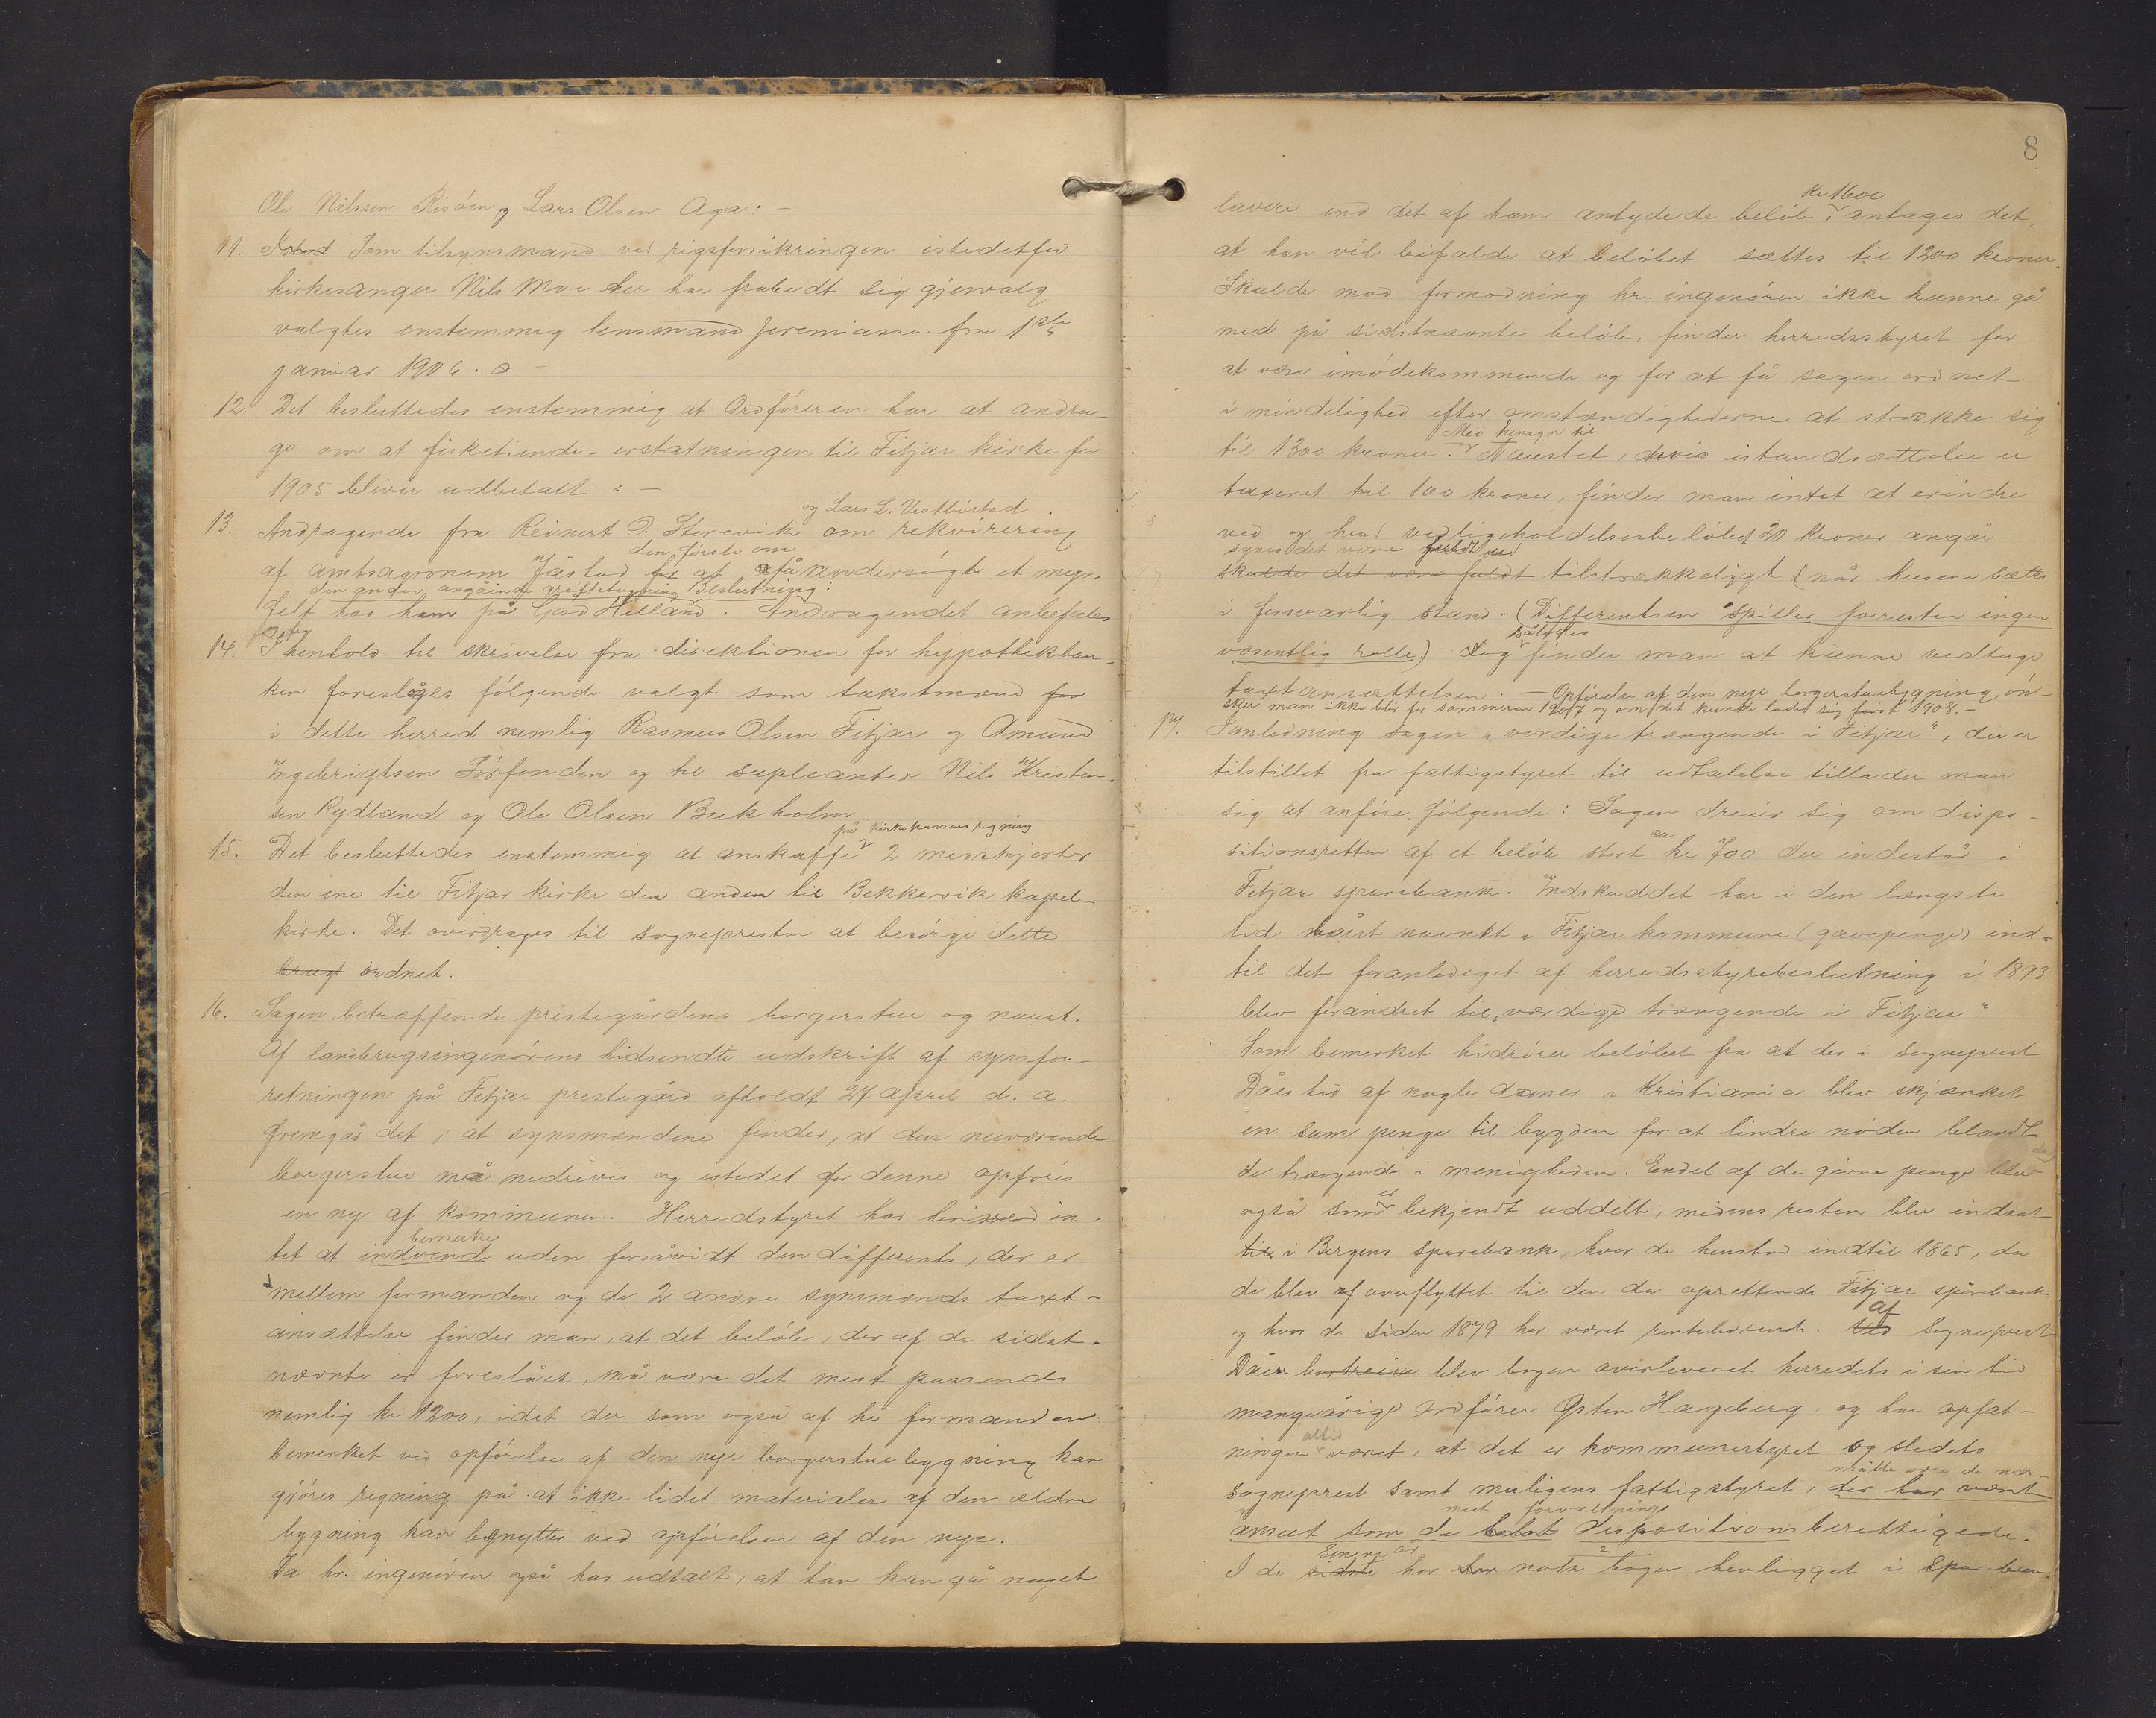 Ole Nilssen Risöen og Lars Olsen Aga: -
11. Som tilsynsmand ved rigsforsikringen istedetfor
kirkesanger Nils Moe der har frabedt sig gjenvalg
valgtes enstemmig lensmand Jeremiassen fra 1ste
januar 1906. a -
12. Det besluttedes enstemmig at Ordföreren har at andra-
ge om at fisketiende-erstatningen til Fitjar kirke for
1905 bliver udbetalt. -
og Lars L. Vestböstad
13. Andragende fra Reinert O. Storevik om rekvirering
den förste om
af amtsagronom Jåstad for at få undersögt et myr-
den anden angående gröftebygning Beslutning:
felt hos ham på Gård Helland. Andragendet anbefales
14. I henhold til skrivelse fra direktionen for hypothekban-
ken foreslåges fölgende valgt som takstmænd for
i dette herred nemlig Rasmus Olsen Fitjar og Amund
Ingebrigtsen Sörfonden og til supleanter Nils Kristen-
sen Rydland og Ole Olsen Bukholm
på kirkekassens regning
15. Det besluttedes enstemmig at anskaffe 2 messskjorter
den ene til Fitjar kirke den anden til Bekkervik kapel-
kirke. Det overdrages til sognepresten at besörge dette
bragt ordnet.
16. Sagen betræffende prestegårdens borgerstue og naust.
Af landbrugsingeniörens hidsendte udskrift af synsfor-
retningen på Fitjar prestegård afholdt 27 april d. a.
fremgår det, at synsmændene finder, at den nuværende
borgerstue må nedrives og istedet for denne opföres
en ny af kommunen. Herredstyret har herimod in-
bemerke
tet at indvende uden forsåvidt den differents, der er
mellem formanden og de 2 andre synsmænds taxt-
ansættelse finder man, at det belöb, der af de sidst-
nævnte er foreslået, må være det mest passende
nemlig kr 1200, idet der som også af hr formanden
bemerket ved opförelse af den nye borgerstuebygning kan
gjöres regning på at ikke lidet materialer af den ældre
bygning kan benyttes ved opförelsen af den nye.
Da hr. ingeniören også har udtalt, at han kan gå noget
8
kr 1600
lavere end det af ham antydede belöb, antages det,
at han vil bifalde at belöbet sættes til 1200 kroner.
Skulde mod formodning hr. ingeniören ikke kunne gå
med på sidstnævnte belöb, finder herredsstyret for
at være imödekommende og for at få sagen ordnet
i mindelighed efter omstændighederne at strække sig
Med hensyn til
til 1300 kroner. Naustet, hvis istandsættelse er
taxeret til 100 kroner, finder man intet at erindre
ved og hvad vedligeholdelsesbelöbet 20 kroner angår
synes det være
skulde det være fuldt tilstrækkeligt når husene sættes
i forsvarlig stand. (Differentsen spiller forresten ingen
således
væsentlig rolle) Dog finder man at kunne vedtage
taxtansættelsen. - Opförelse af den nye borgerstuebygning ön-
sker man ikke blir för sommeren 1907 og om det kunde lade sig först 1908. -
17. I anledning sagen "værdige trængende i Fitjar", der er
tilstillet fra fattigstyret til udtalelse tillader man
sig at anföre fölgende: Sagen dreier sig om dispo-
sitionsretten af et belöb stort kr 700 der indestår i
Fitjar sparebank. Indskuddet har i den længste
tid båret navnet "Fitjar kommune (gavepenge) ind-
til det foranlediget af herredsstyrebeslutning i 1893
blev forandret til "værdige trængende i Fitjar".
Som bemerket hidrörer belöbet fra at der i sogneprest
Dåes tid af nogle damer i Kristiania blev skjænket
en sum penge til bygden for at lindre nöden blandt
de trængende i menigheden. Endel af de givne penge blev
er
også som bekjendt uddelt, midens resten blev indsat
til i Bergens sparebank, hvor de henstod indtil 1865, da
de blev af overflyttet til den da oprettende Fitjar sparebank
af
og hvor de siden 1879 har været rentebærende. Ved Sogneprest
Dåes bortreise blev bogen overleveret herredets i sin tid
mangeårige ordförer Østen Hageberg, og har opfat-
altid
ningen været, at det er kommunestyret og stedets
måtte være de nær-
sogneprest samt muligens fattigstyret, der har været
mest forvaltnings
anseet som de dispositionsberettigede.
Senere år
I de sidste har nok bogen henligget i Sparban-